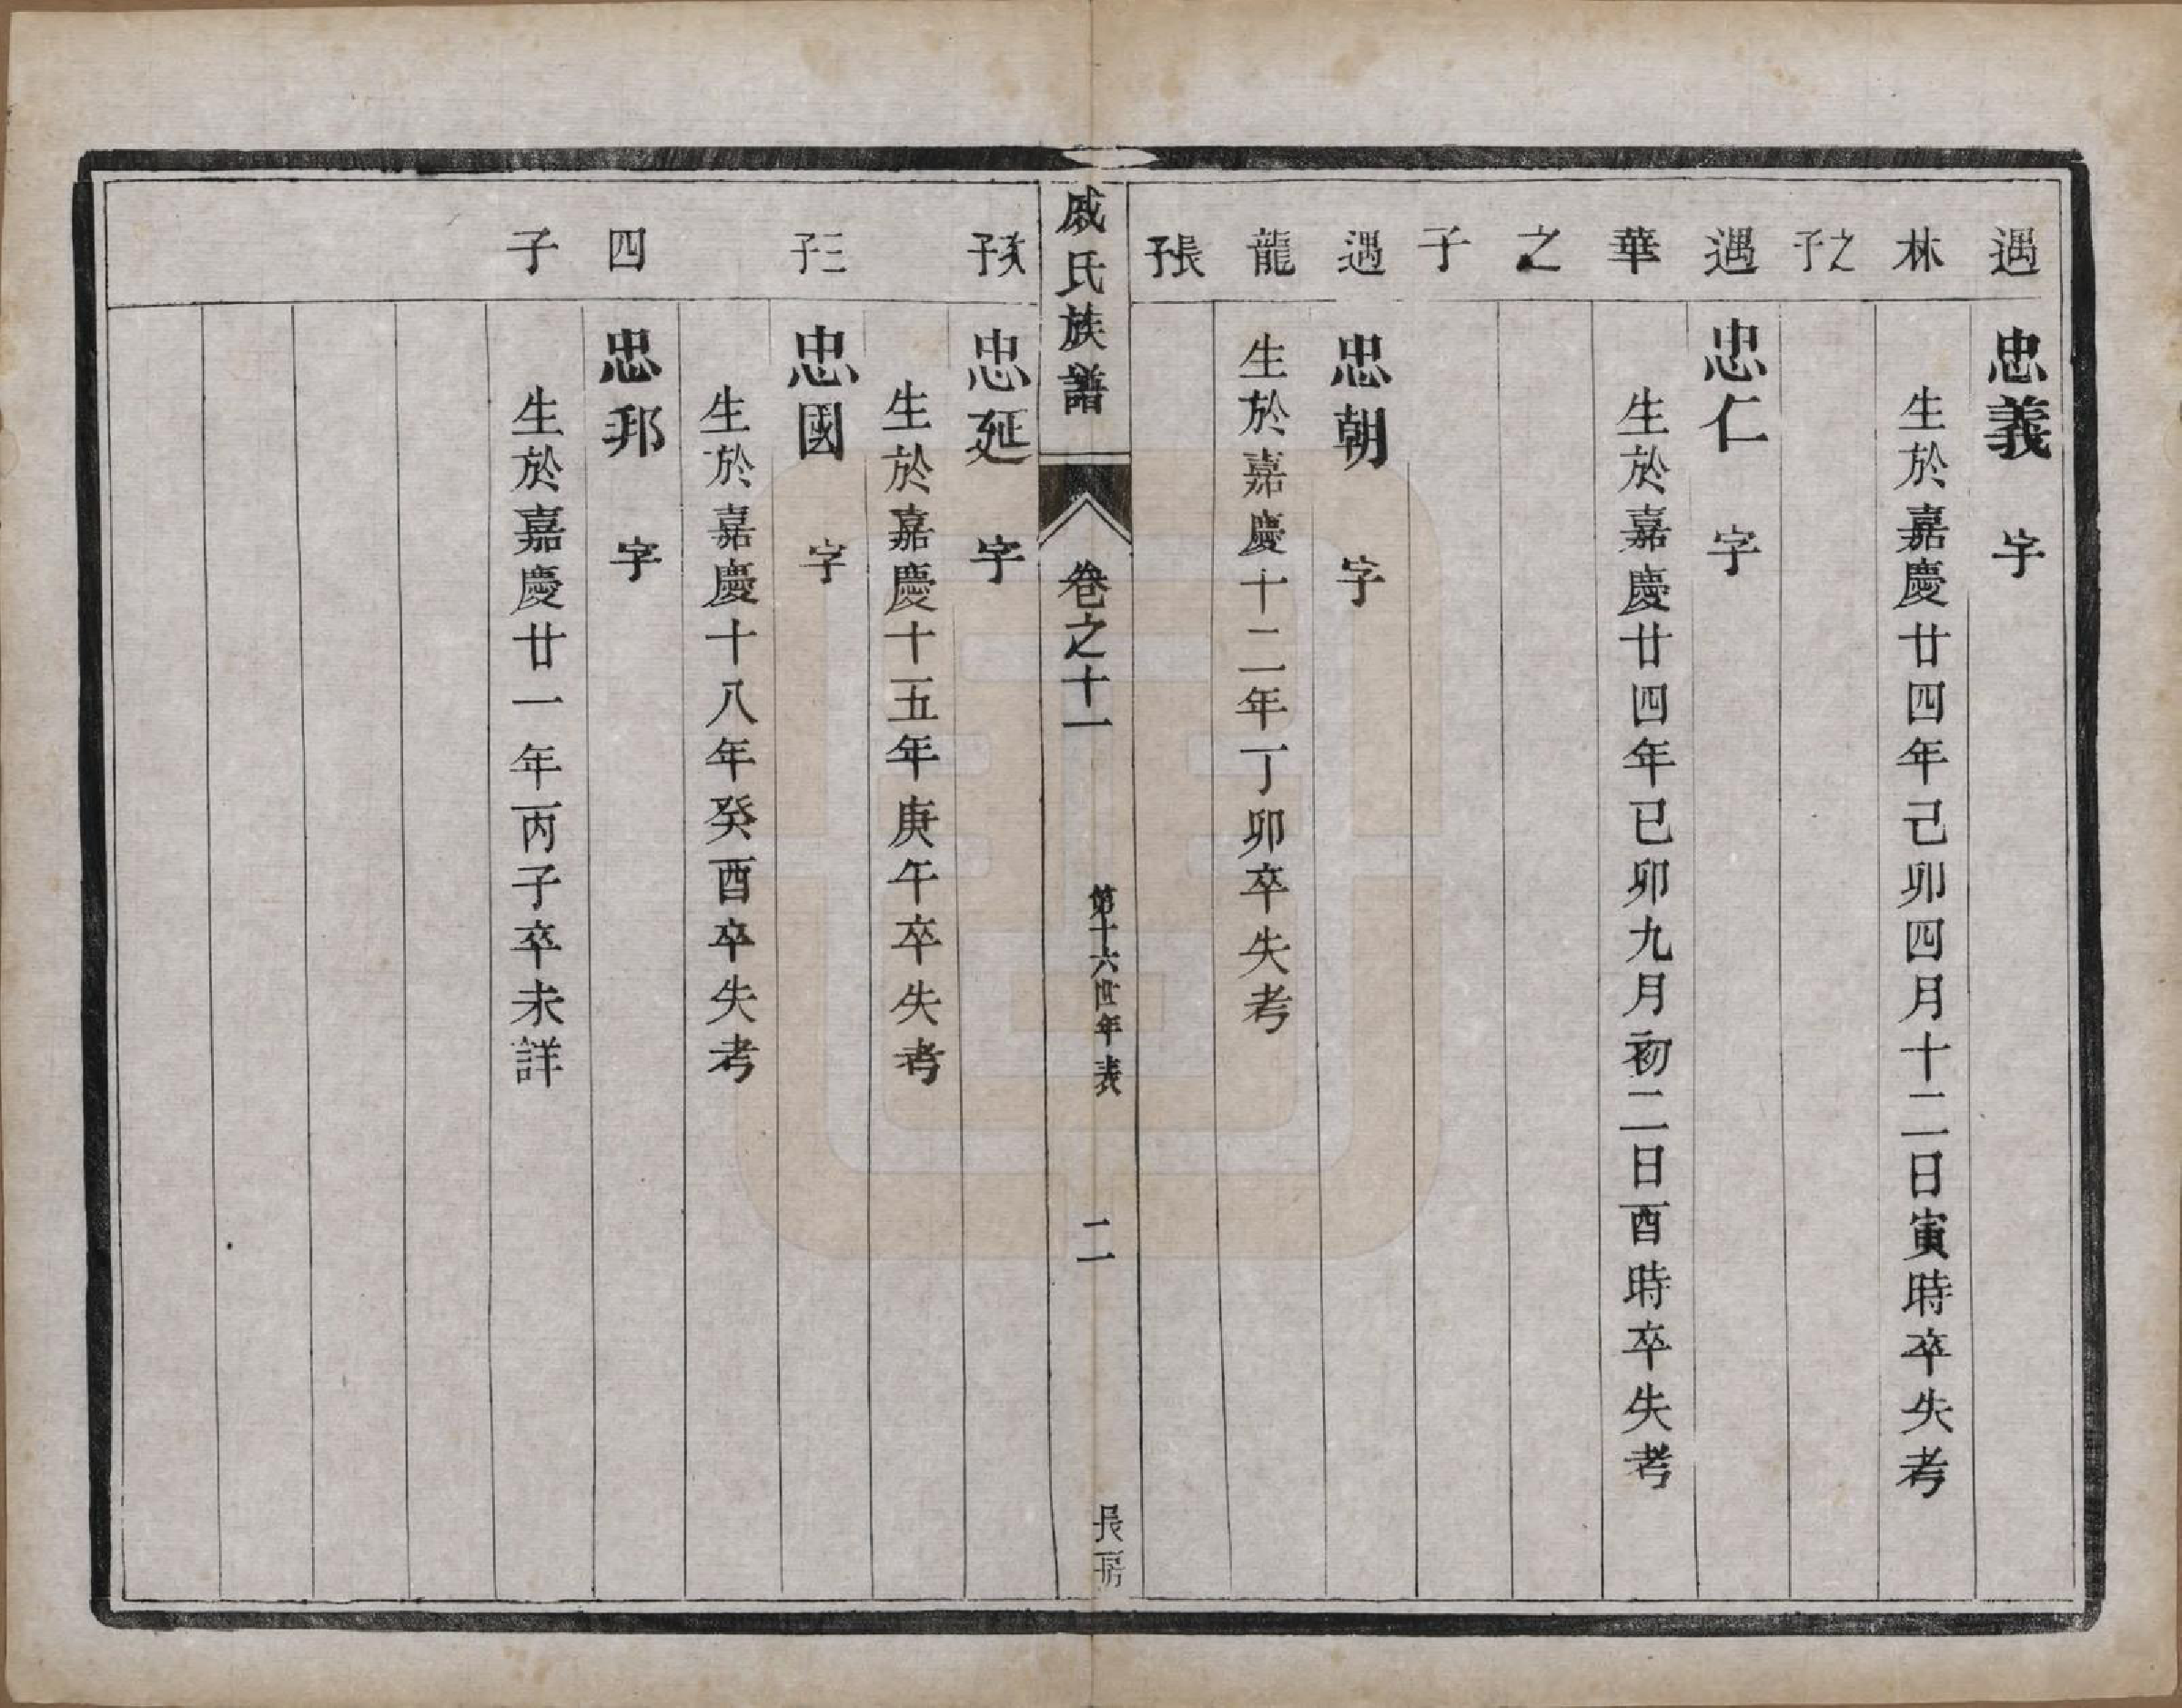 遇
忠義 字
林
生於嘉慶廿四年己卯四月十二日寅時卒失考
之子
遇
忠仁 字
華
生於嘉慶廿四年已卯九月初二日酉時卒失考
之
子
遇
忠朝 字
龍
生於嘉慶十二年丁卯卒失考
長子
戚氏族譜
卷之十一
第十六世年表
二
長房
次子
忠延 字
生於嘉慶十五年庚午卒失考
三子
忠國 字
生於嘉慶十八年癸酉卒失考
四
忠邦 字
子
生於嘉慶廿一年丙子卒未詳